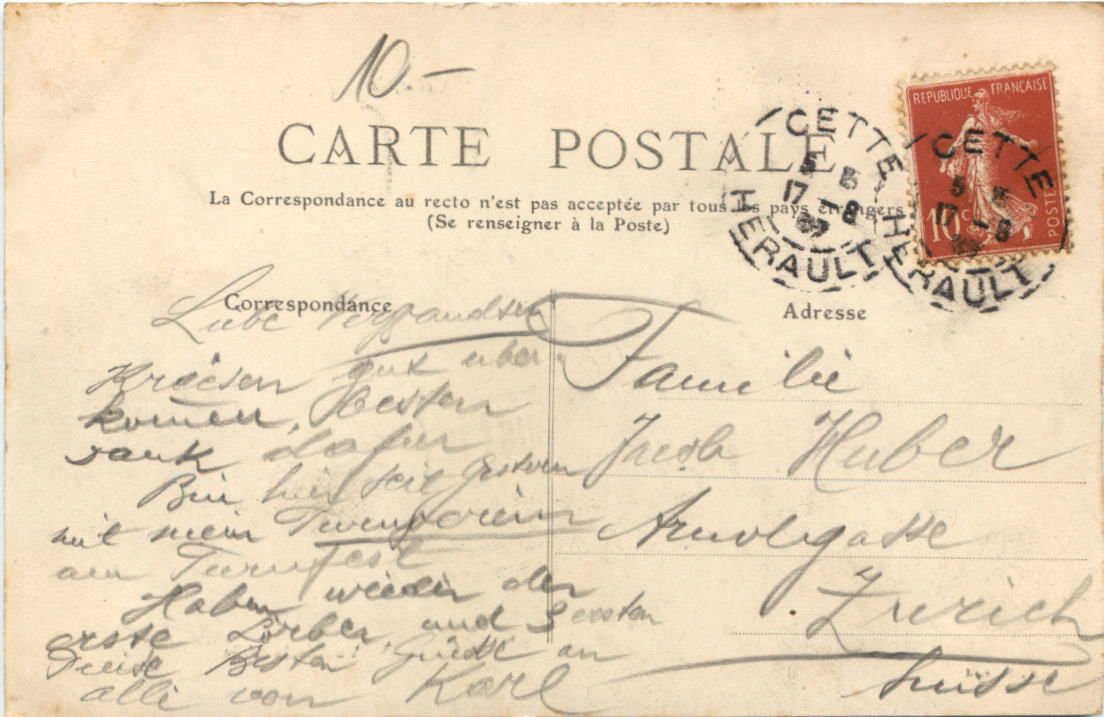 10.-
CARTE POSTALE
La Correspondance au recto n'est pas acceptée par tous les pays étrangers
(Se renseigner à la Poste)
CETTE
5 5
17 -8
HERAULT
CETTE
17 -8
HERAULT
REPUBLIQUE FRANÇAISE
10c
POSTES
Correspondance
Liebe
gut uber
komen, besten
dank dafur
Bin hier seit gestern
mit mein Turnverein
am Turnfest
Haben wieder den
erste Lorber und 3 ersten
Preise Besten Grüsse an
alle von Karl
Adresse
Familie
Jacob Huber
Zurich
Suisse